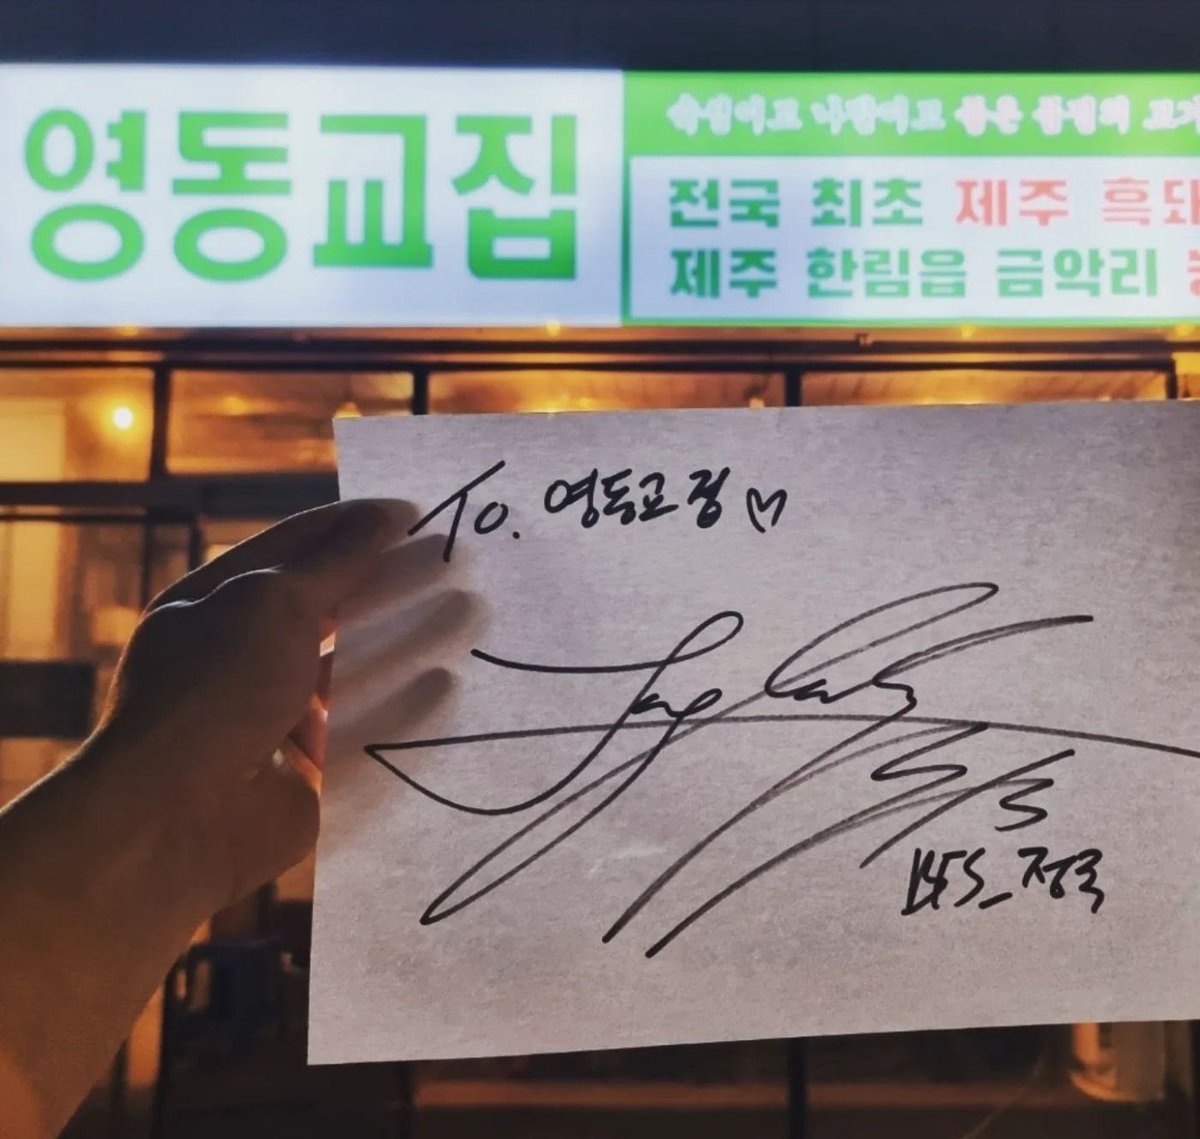 영동교집
전국 최초 제주 흑돼
제주 한림읍 금악리
To. 영동교집♡
BTS_정국